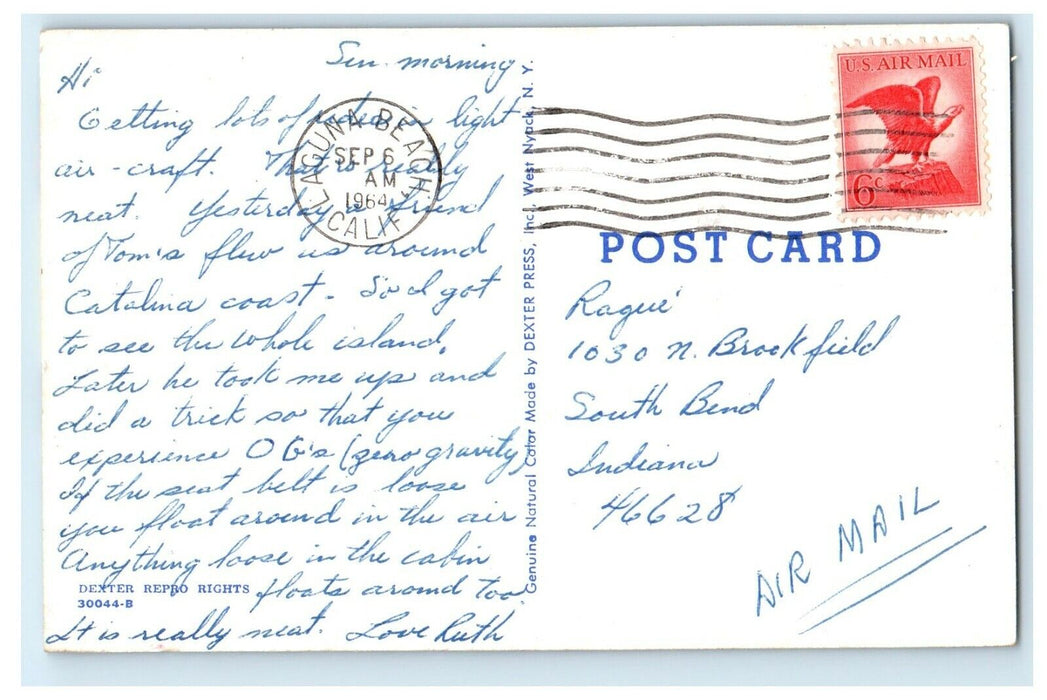 Sun. morning
Hi
Getting lots of rides in light
air-craft. That is really
neat. Yesterday a friend
of Tom's flew us around
Catalina coast. So I got
to see the whole island.
Later he took me up and
did a trick so that you
experience O G's (zero gravity)
If the seat belt is loose
you float around in the air
Anything loose in the cabin
floats around too.
It is really neat. Love Ruth
DEXTER REPRO RIGHTS
30044-B
LAGUNA BEACH
SEP 6
AM
1964
CALIF
Genuine Natural Color Made by DEXTER PRESS, Inc., West Nyack, N. Y.
U.S. AIR MAIL
6c
POST CARD
Ragué
1030 N. Brookfield
South Bend
Indiana
46628
AIR MAIL